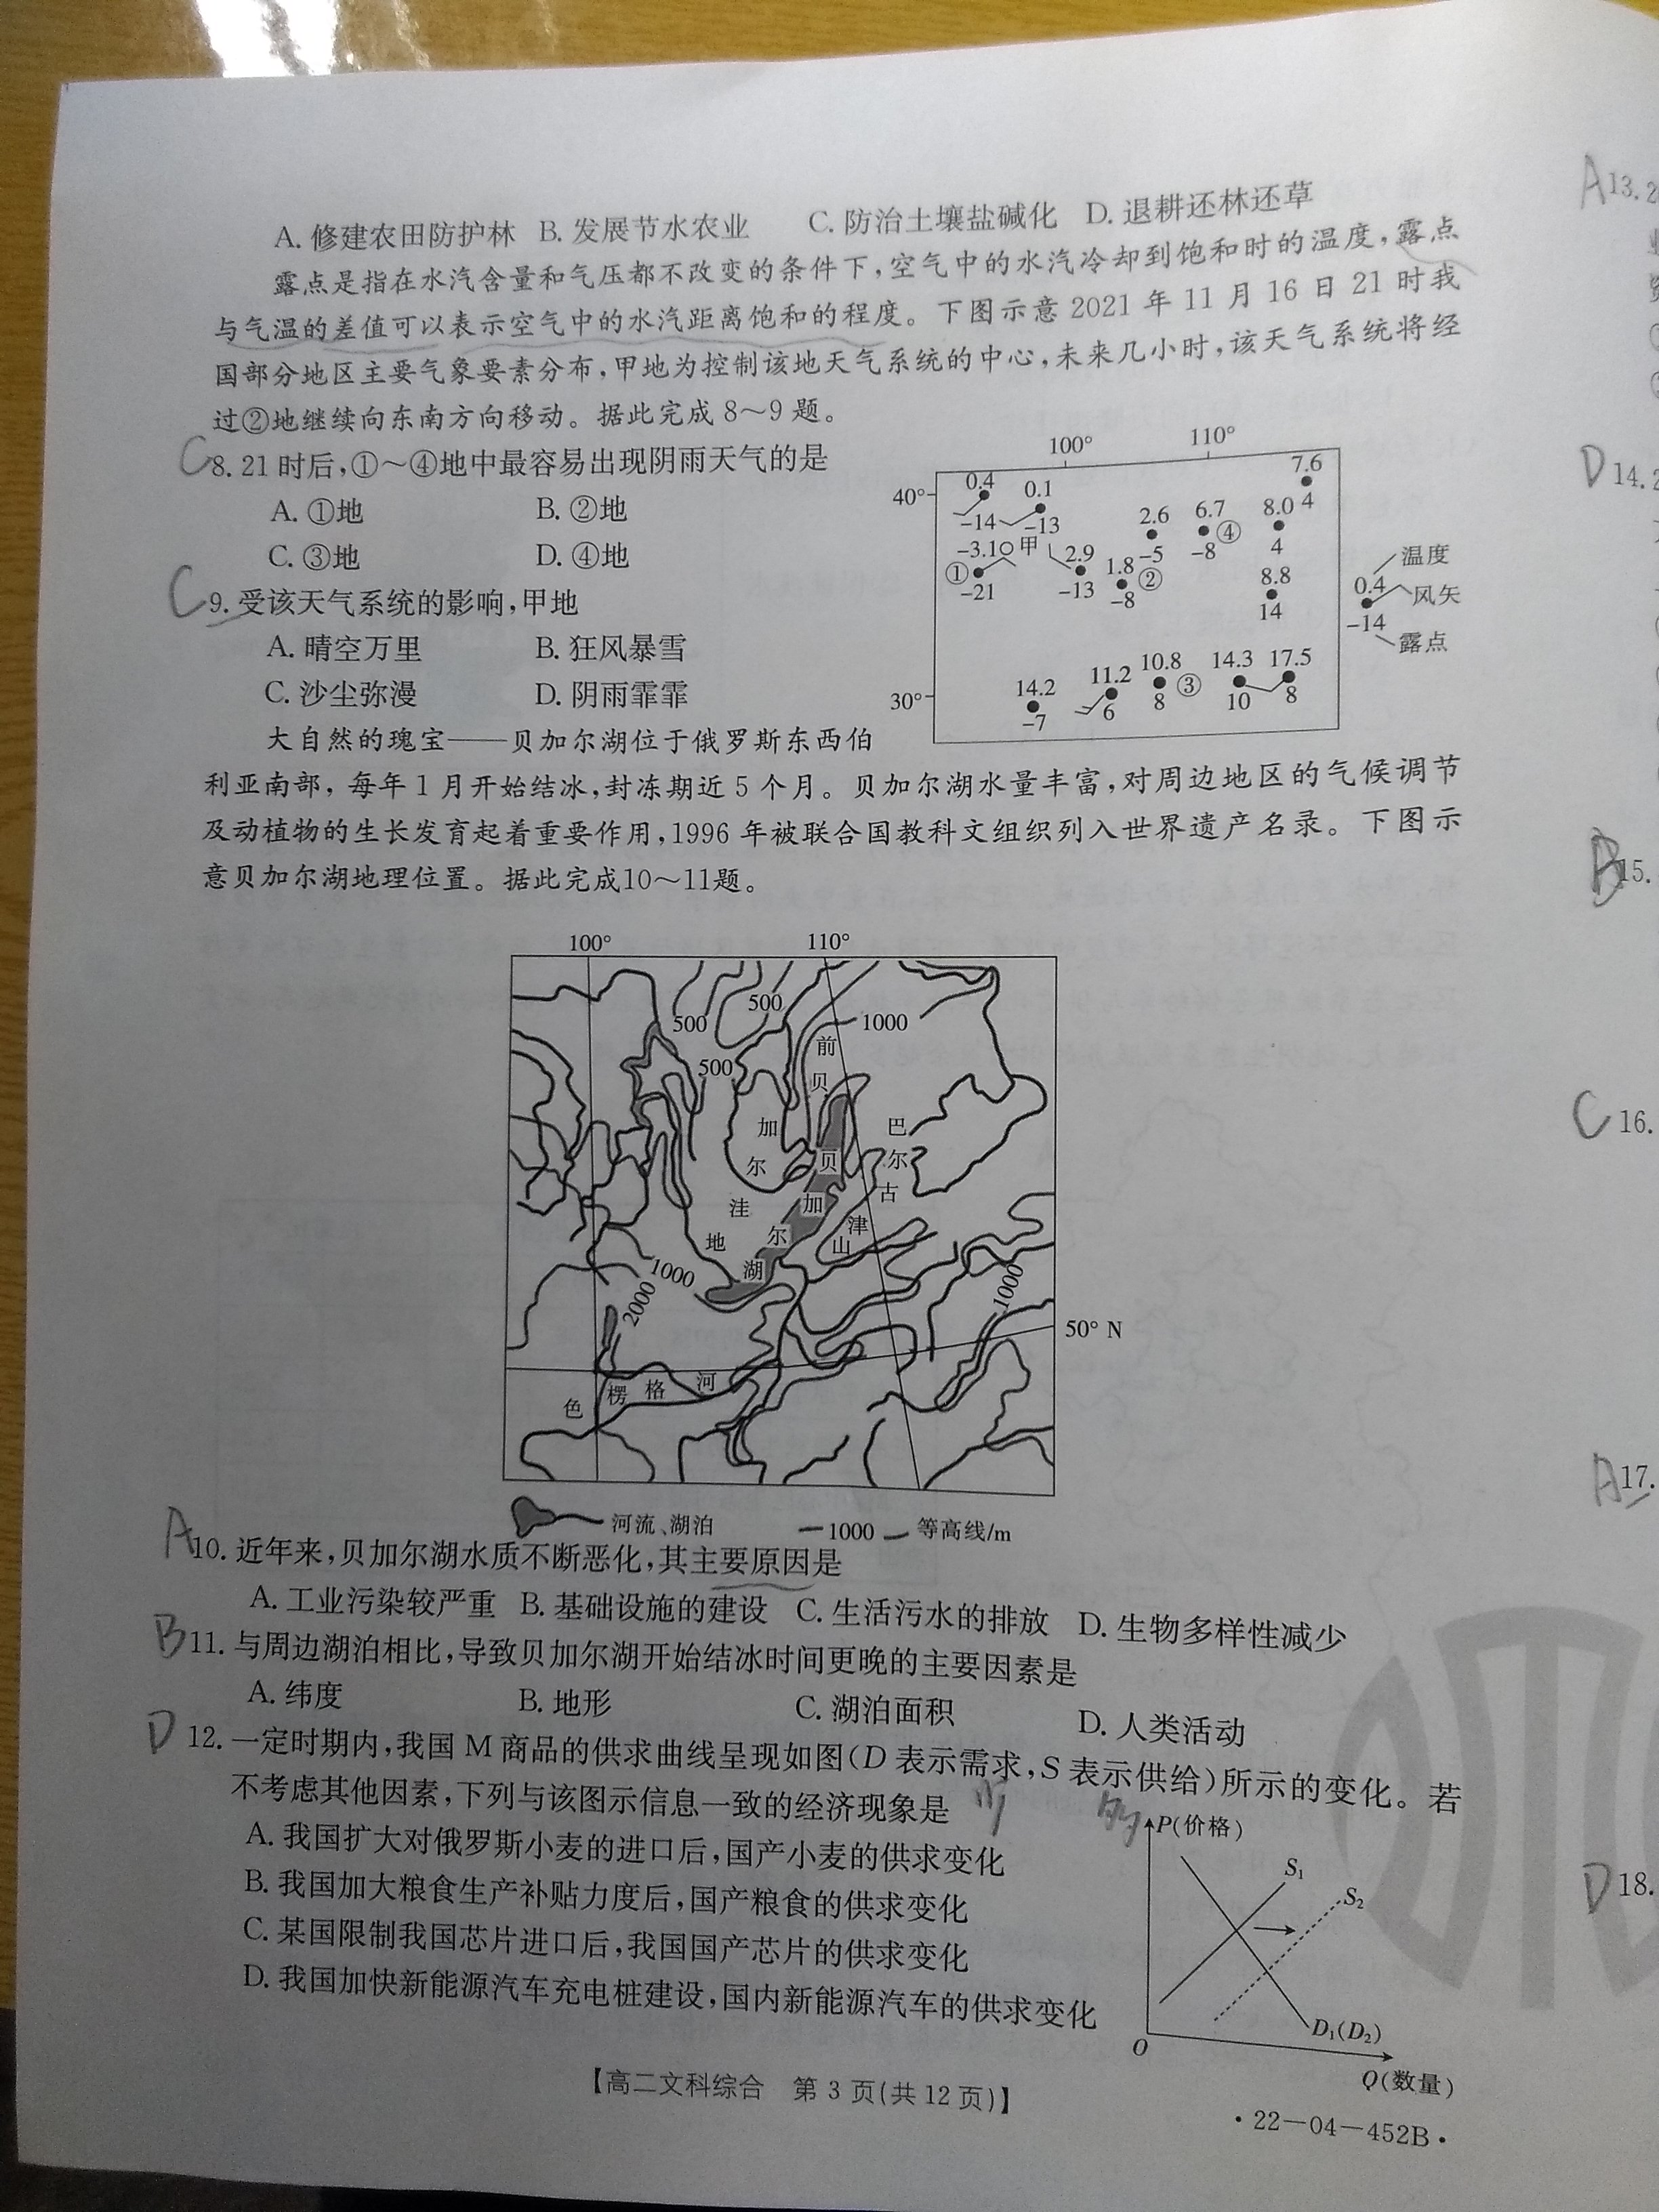 A. 修建农田防护林 B. 发展节水农业 C. 防治土壤盐碱化 D. 退耕还林还草
露点是指在水汽含量和气压都不改变的条件下,空气中的水汽冷却到饱和时的温度,露点
与气温的差值可以表示空气中的水汽距离饱和的程度。下图示意 2021 年 11 月 16 日 21 时我
国部分地区主要气象要素分布,甲地为控制该地天气系统的中心,未来几小时,该天气系统将经
过②地继续向东南方向移动。据此完成 8~9 题。
C 8. 21 时后,①~④地中最容易出现阴雨天气的是
A. ①地 B. ②地
C. ③地 D. ④地
C 9. 受该天气系统的影响,甲地
A. 晴空万里 B. 狂风暴雪
C. 沙尘弥漫 D. 阴雨霏霏
100° 110°
40°
30°
0.4
-14
0.1
-13
-3.1 甲
①
-21
2.9
-13
1.8 ②
-8
2.6
-5
6.7 ④
-8
8.0
4
7.6
4
8.8
14
14.2
-7
11.2
6
10.8 ③
8
14.3
10
17.5
8
温度
0.4 风矢
-14
露点
大自然的瑰宝——贝加尔湖位于俄罗斯东西伯
利亚南部,每年 1 月开始结冰,封冻期近 5 个月。贝加尔湖水量丰富,对周边地区的气候调节
及动植物的生长发育起着重要作用,1996 年被联合国教科文组织列入世界遗产名录。下图示
意贝加尔湖地理位置。据此完成10~11题。
100° 110°
500
500
500
1000
前贝加尔洼地
贝加尔湖
巴尔古津山
1000
2000
1000
50° N
色楞格河
河流、湖泊 1000 等高线/m
A 10. 近年来,贝加尔湖水质不断恶化,其主要原因是
A. 工业污染较严重 B. 基础设施的建设 C. 生活污水的排放 D. 生物多样性减少
B 11. 与周边湖泊相比,导致贝加尔湖开始结冰时间更晚的主要因素是
A. 纬度 B. 地形 C. 湖泊面积 D. 人类活动
D 12. 一定时期内,我国 M 商品的供求曲线呈现如图(D 表示需求,S 表示供给)所示的变化。若
不考虑其他因素,下列与该图示信息一致的经济现象是
A. 我国扩大对俄罗斯小麦的进口后,国产小麦的供求变化
B. 我国加大粮食生产补贴力度后,国产粮食的供求变化
C. 某国限制我国芯片进口后,我国国产芯片的供求变化
D. 我国加快新能源汽车充电桩建设,国内新能源汽车的供求变化
P(价格)
S₁
S₂
D₁(D₂)
O
Q(数量)
【高二文科综合 第 3 页(共 12 页)】
·22—04—452B·
A 13. 2
D 14. 2
B 15.
C 16.
A 17.
D 18.